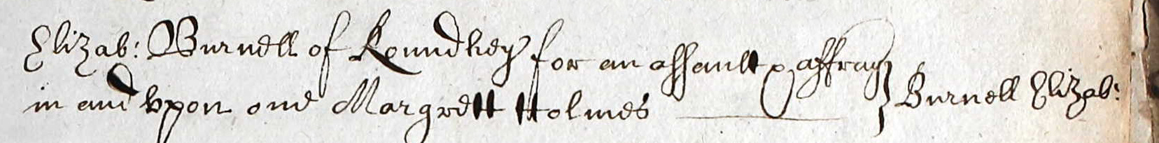 Elizab: Burnell of Roundhey for an assault & affray
in and vpon one Margrett Holmes
Burnell Elizab: